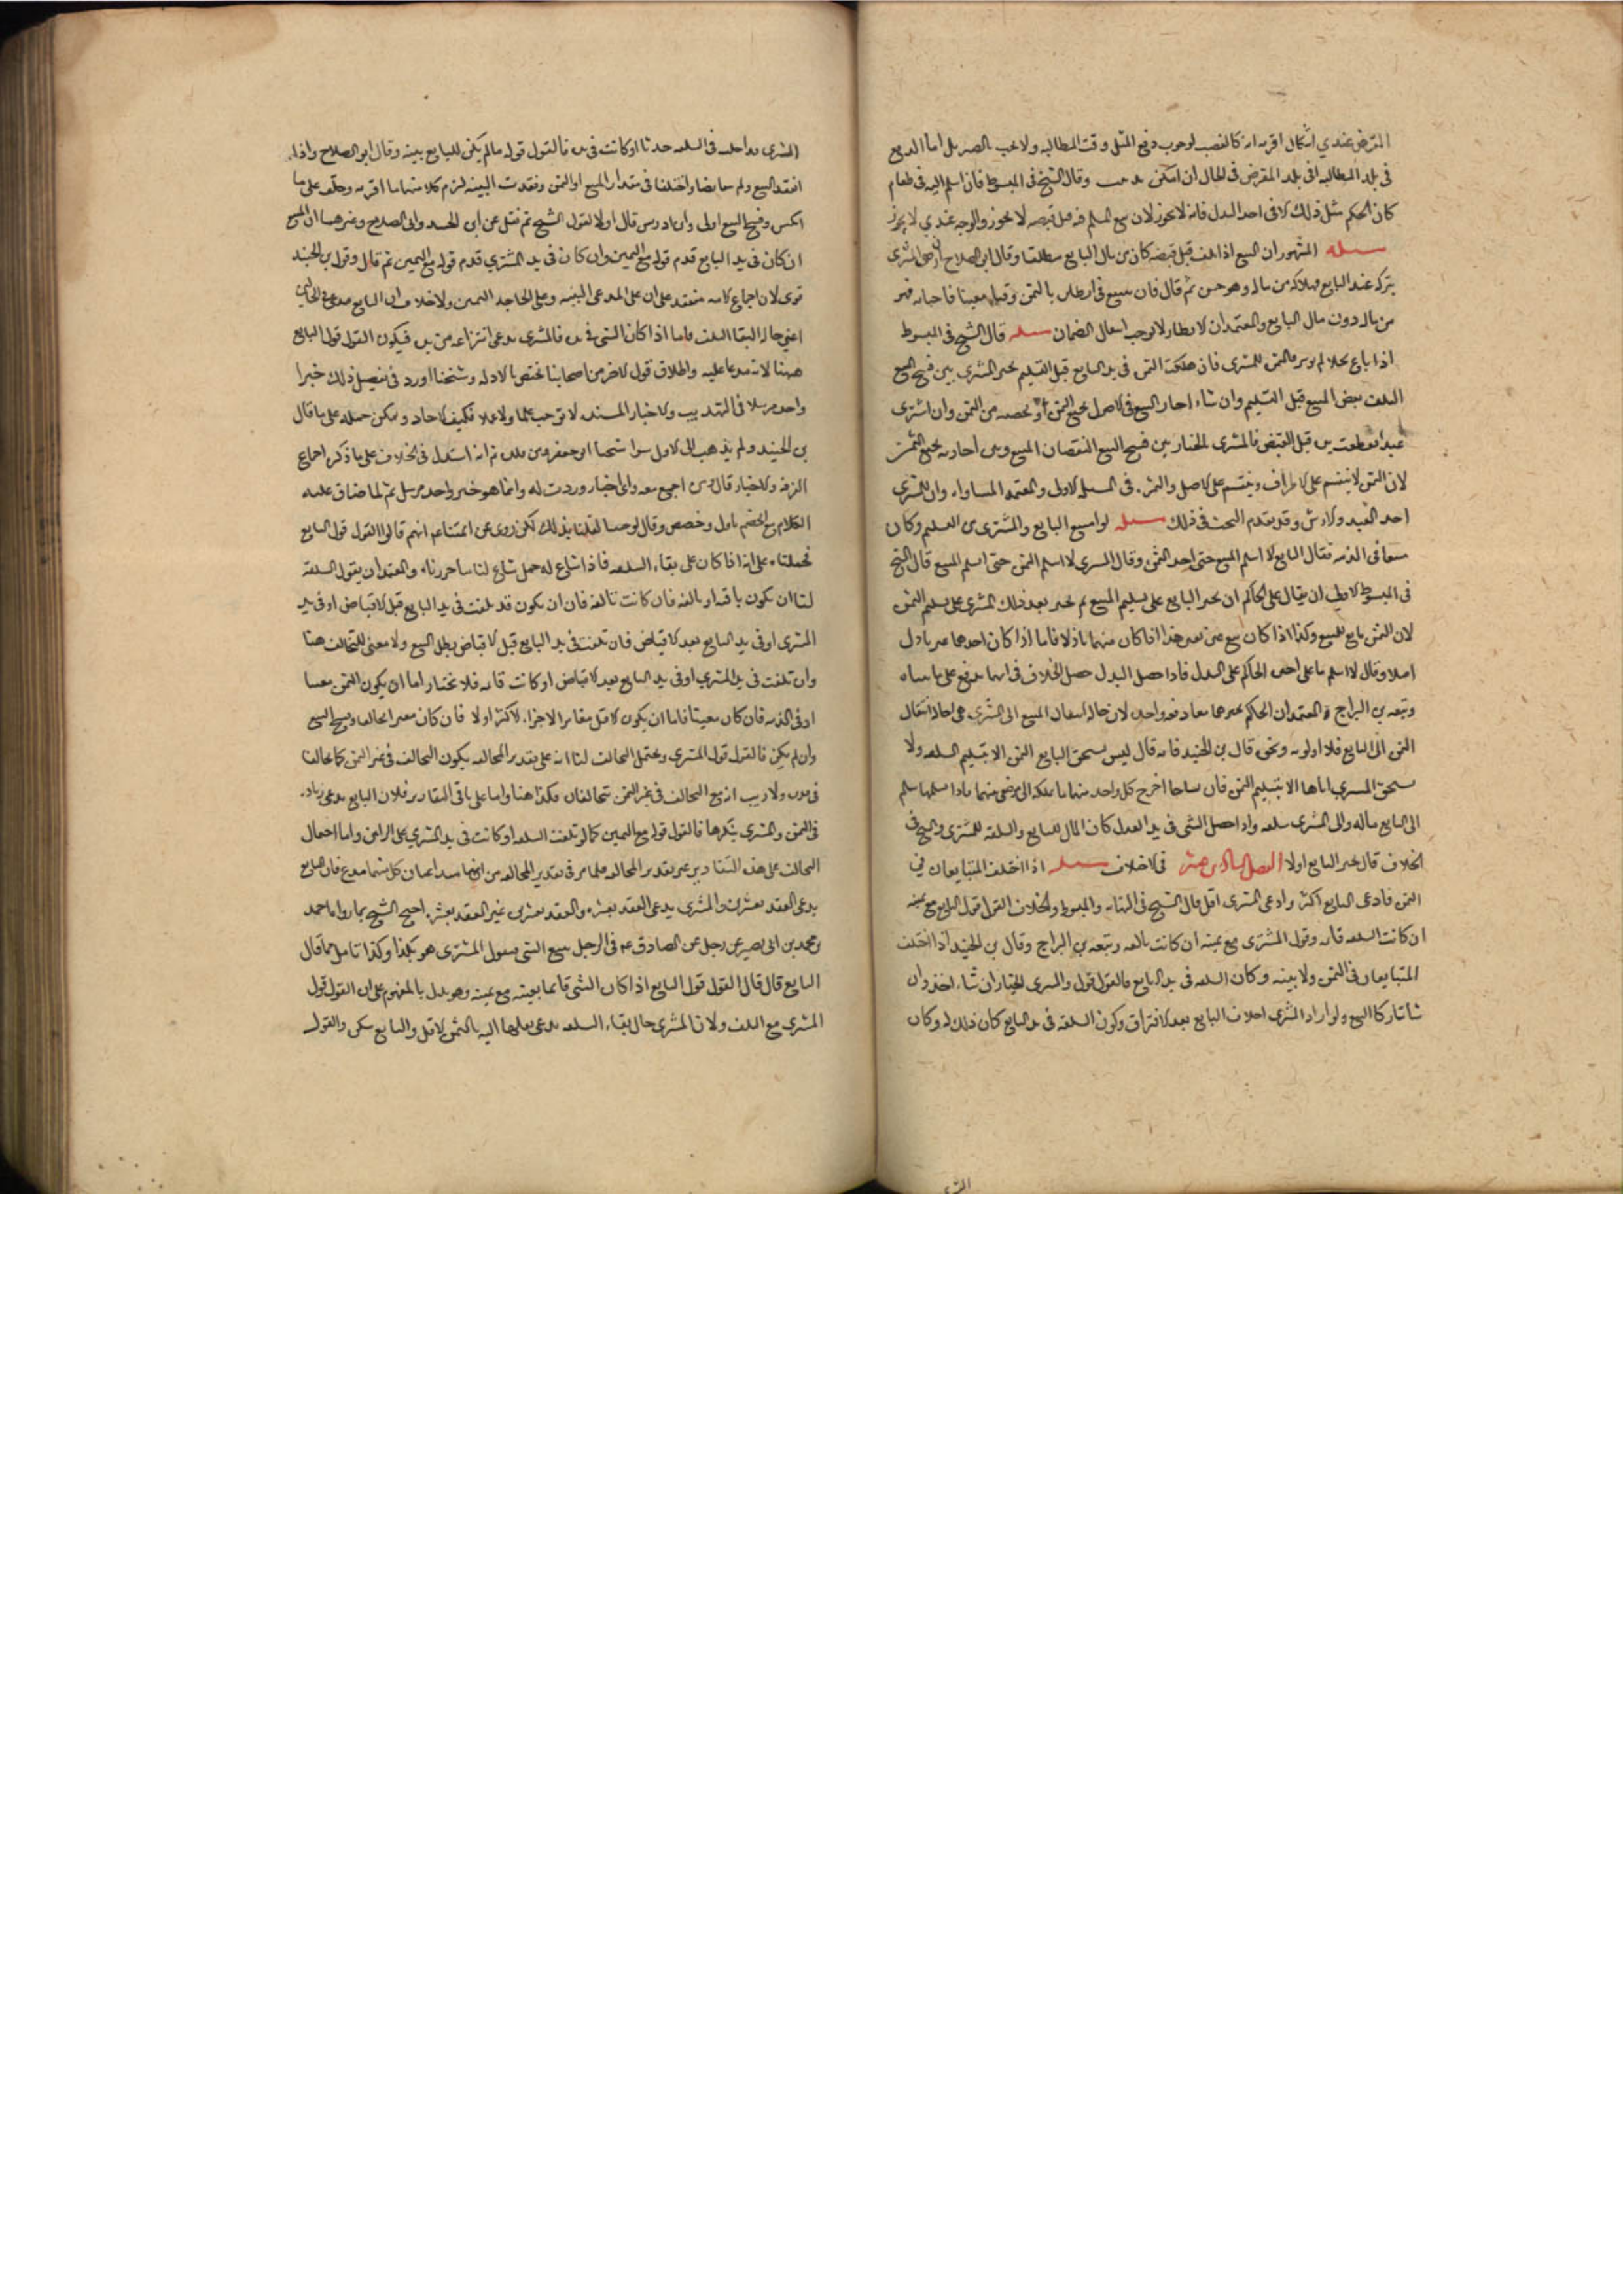 القرض عندي اشكال اقربه انه كالغصب لوجوب دفع المثل وقت المطالبه ولا يجب الصبر بل اما الدفع
في بلد المطالبه او في بلد القرض في الحال ان امكن وقال الشيخ في المبسوط فان اسلم اليه في طعام
كان الحكم مثل ذلك الا في اخذ البدل فانه لا يجوز لان بيع المسلم فيه قبل قبضه لا يجوز والوجه عندي لا يجوز
مسله المشهور ان المبيع اذا تلف قبل قبضه كان من مال البايع مطلقا وقال ابو الصلاح ان رضي المشتري
بتركه عند البايع فهلاكه من ماله وهو حسن ثم قال فان
من ماله دون مال البايع والمعتمد ان الانظار لا يوجب انتقال الضمان مسله قال الشيخ في المبسوط
اذا باع نخلا لم يوبر فالثمن للمشتري فان هلكت الثمن في يد البايع قبل التسليم تخير المشتري بين فسخ البيع
لتلف بعض المبيع قبل التسليم وان شاء اجاز البيع في الاصول بجميع الثمن او بحصته من الثمن وان اشترى
عبدا فقطعت يده قبل القبض فالمشتري بالخيار بين فسخ البيع لنقصان المبيع وبين اجازته بجميع الثمن
لان الثمن لا ينقسم على الاطراف وينقسم على الاصل والثمرة في المسله الاولى والمعتمد المساواه وان للمشتري
اخذ العبد والارش وقد تقدم البحث في ذلك مسله لو امتنع البايع والمشتري من التسليم وكان
في الذمه فقال البايع لا اسلم المبيع حتى اخذ الثمن وقال المشتري لا اسلم الثمن حتى اسلم المبيع قال الشيخ
في المبسوط الاولى ان يقال على الحاكم ان يجبر البايع على تسليم المبيع ثم يجبر بعد ذلك المشتري على تسليم الثمن
لان الثمن تابع للمبيع وكذا اذا كان بيع عين بعين هذا اذا كان منهما باذلا فاما اذا كان احدهما غير باذل
اصلا وقال لا اسلم ما علي اجبره الحاكم على البدل فاذا حصل البدل حصل الخلاف في ايهما يدفع على ما بيناه
وتبعه بن البراج والمعتمد ان الحاكم يجبرهما معا دفعه واحده لان حاله انتقال المبيع الى المشتري هي حاله انتقال
الثمن الى البايع فلا اولويه ونحوه قال بن الجنيد فانه قال ليس يستحق البايع الثمن الا بتسليم السلعه ولا
يستحق المشتري اياها الا بتسليم الثمن فان تشاحا اخرج كل واحد منهما ما يملكه الى من رضي منهما فاذا تسلمها سلم
الى البايع ماله والى المشتري سلعته واذا حصل الشي في يد العدل كان المال للبايع والسلعه للمشتري والشيخ في
الخلاف قال يجبر البايع اولا الفصل السادس عشر في الاختلاف مسله اذا اختلف المتبايعان في
الثمن فادعى البايع اكثر وادعى المشتري اقل قال الشيخ في النهايه والمبسوط والخلاف القول قول البايع مع يمينه
ان كانت السلعه قائمه وقول المشتري مع يمينه ان كانت تالفه وتبعه بن البراج وقال بن الجنيد اذا اختلف
المتبايعان في الثمن ولا بينه وكان السلعه في يد البايع فالقول قوله والمشتري بالخيار ان شاء اخذ وان
شا تتاركا البيع ولو اراد المشتري احلاف البايع بعد الافتراق وكون السلعه في يد البايع كان ذلك له وكان
المشتري
المشتري في السلعه حدثا او كانت في يده فالقول قوله ما لم يكن للبايع بينه وقال ابو الصلاح واذا
انعقد البيع ولم يتقابضا واختلفا في مقدار المبيع او الثمن وفقدت البينه لزم كلا منهما ما اقر به وحلف على ما
انكر وفسخ البيع اولى وابن ادريس قال اولا بقول الشيخ ثم نقل عن ابن الجنيد وابي الصلاح وغيرهما ان المبيع
ان كان في يد البايع قدم قوله مع اليمين وان كان في يد المشتري قدم قوله مع اليمين ثم قال وقول بن الجنيد
قوي لان اجماع الامه منعقد على ان على المدعي البينه وعلى الجاحد اليمين ولا خلاف ان البايع مدع في الحالين
اعني حاله البقا والتلف فاما اذا كان الشي في يده فالمشتري يدعي انتزاعه من يده فيكون القول قول البايع
ههنا لانه مدعا عليه واطلاق قول الاخر من اصحابنا يختص بالادله وشيخنا اورد في تفصيل ذلك خبرا
واحدا مرسلا في التهذيب والاخبار المسنده لا توجب علما ولا عملا فكيف الاحاد ويمكن حمله على ما قال
بن الجنيد ولم يذهب الى الاول سوا شيخنا ابو جعفر ومن قلده ثم انه استدل في الخلاف على ما ذكره اجماع
الفرقه والاخبار قال ومن اجمع معه واي اخبار وردت له وانما هو خبر واحد مرسل ثم لما ضاق عليه
الكلام مع الخصم تاول وخصص وقال لو خلينا لقلنا بذلك لكن روي عن ائمتنا عم انهم قالوا القول قول البايع
فحملناه على انه اذا كان على بقاء السلعه فاذا ساغ له حمل ساغ لنا ما حررناه والمعتمد ان يقول السلعه
لنا ان يكون باقيه او تالفه فان كانت تالفه فان ان يكون قد تلفت في يد البايع قبل الاقباض او في يد
المشتري او في يد البايع بعد الاقباض فان تلفت في يد البايع قبل الاقباض بطل البيع ولا معنى للتحالف هنا
وان تلفت في يد المشتري او في يد البايع بعد الاقباض او كانت قائمه فلا يختار اما ان يكون الثمن معينا
او في الذمه فان كان معينا فاما ان يكون الاقل مغايرا لاجزاء الاكثر او لا فان كان مغايرا تحالفا وفسخ البيع
وان لم يكن فالقول قول المشتري ويحتمل التحالف لنا انه على تقدير المخالفه يكون التحالف في عين الثمن كما لو تخالفا
في ولا ريب انه مع التحالف في عين الثمن يتحالفان فكذا هنا واما على باقي التقادير فلان البايع يدعي زياده
في الثمن والمشتري ينكرها فالقول قوله مع اليمين كما لو تلفت السلعه او كانت في يد المشتري على الراين واما احتمال
التحالف على هذه التقادير غير تقدير المخالفه فلما مر في تقدير المخالفه من انهما متداعيان كل منهما مدع فان البايع
يدعي العقد بعشرين والمشتري يدعي العقد بعشره والعقد بعشرين غير العقد بعشره احتج الشيخ بما رواه احمد
بن محمد بن ابي نصير عن رجل عن الصادق عم في الرجل يبيع الشي فيقول المشتري هو بكذا وكذا باقل مما قال
البايع قال قال القول قول البايع اذا كان الشي قائما بعينه مع يمينه وهو يدل بالمفهوم على ان القول قول
المشتري مع التلف ولان المشتري حال بقاء السلعه يدعي نقلها اليه بالثمن الاقل والبايع ينكر والقول